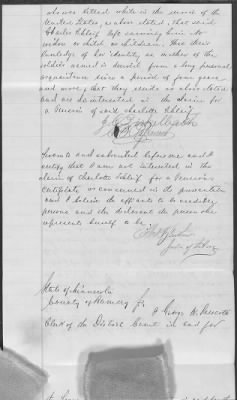 was killed while in the service of the
United States, as above stated, that said
Charles Schleif left surviving him no
widow or child or children. That their
knowledge of her identity, as mother of the
soldier named is derived from a long personal
acquaintance since a period of four years
and more, that they reside as above stated
and are disinterested in the claim for
a Pension of said Charlotte Schleif
Sworn to and subscribed before me and I
certify that I am not interested in the
claim of Charlotte Schleif for a Pension
Certificate or concerned in its prosecution
and I believe the affiants to be credible
persons and the declarant the person she
represents herself to be.
State of Minnesota
County of Ramsey
I George W. Prescott
Clerk of the District Court in and for